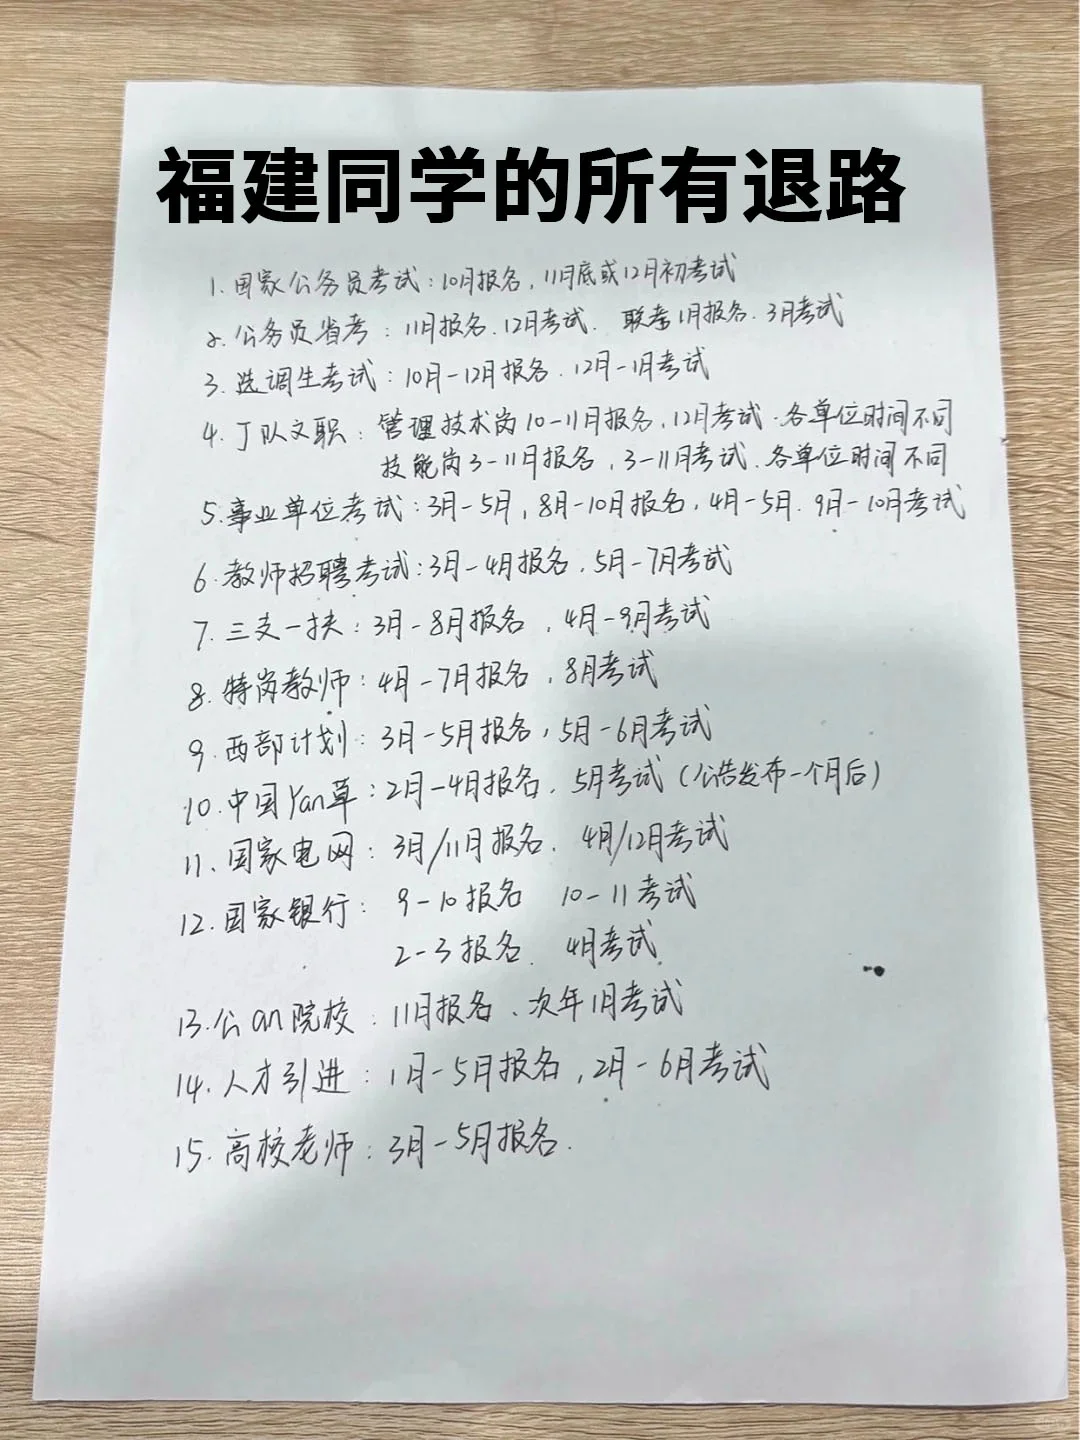 福建同学的所有退路
1.国家公务员考试:10月报名,11月底或12月初考试
2.公务员省考:11月报名.12月考试. 联考1月报名.3月考试
3.选调生考试:10月-12月报名.12月-1月考试
4.丁队文职:管理技术岗10-11月报名,12月考试.各单位时间不同
技能岗3-11月报名,3-11月考试.各单位时间不同
5.事业单位考试:3月-5月,8月-10月报名,4月-5月.9月-10月考试
6.教师招聘考试:3月-4月报名.5月-7月考试
7.三支一扶:3月-8月报名,4月-9月考试
8.特岗教师:4月-7月报名,8月考试
9.西部计划:3月-5月报名,5月-6月考试
10.中国Yan草:2月-4月报名.5月考试(公告发布一个月后)
11.国家电网:3月/11月报名.4月/12月考试
12.国家银行:9-10报名 10-11考试
2-3报名.4月考试.
13.公an院校:11月报名、次年1月考试
14.人才引进:1月-5月报名,2月-6月考试
15.高校老师:3月-5月报名.